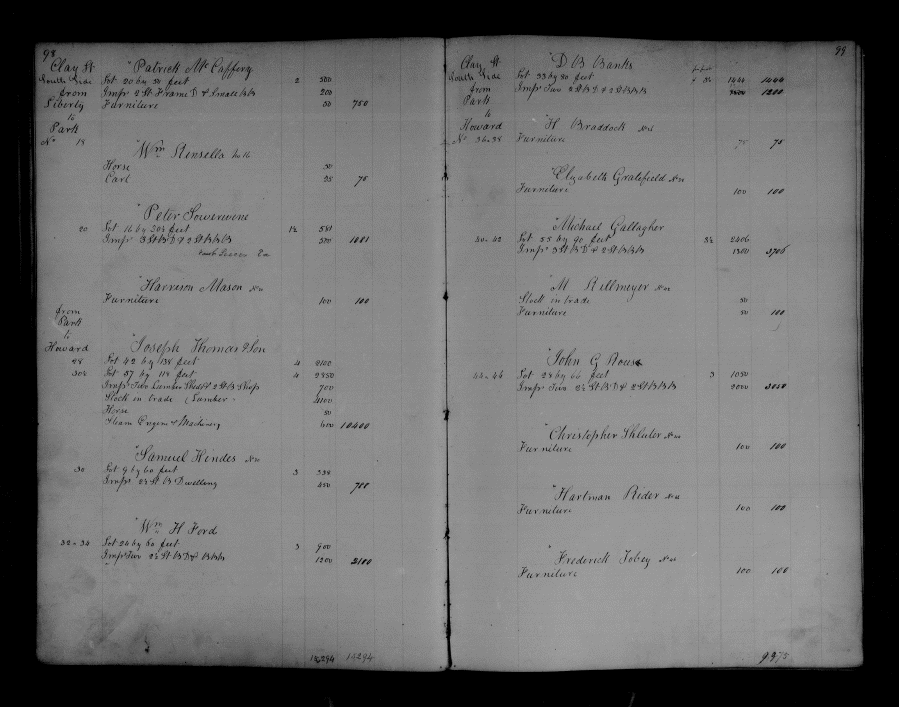 98
Clay St "Patrick McCaffery
South Side Lot 20 by 50 feet 2 500
from Imps 2 St Frame D & Small BB 200
Liberty Furniture 50 750
to
Park
No 18
"Wm No 16
Horse 50
Cart 25 75
"Peter
20 Lot 16 by feet 581
Imps 3 St B D & 2 St B BB 500 1081
"Harrison Mason
Furniture 100 100
from
Park
to
Howard "Joseph Thomas & Son
28 Lot 42 by 138 feet 4 2100
Lot 57 by 118 feet 4 2850
Imps Two Lumber Sheds & 2 St B Shop 700
Stock in trade (Lumber 4100
Horse 50
Steam Engine & Machinery 600 10400
"Samuel Hindes
30 Lot 9 by 60 feet 3 338
Imps 2½ St B Dwelling 450 788
"Wm H Ford
32 - 34 Lot 24 by 60 feet 3 900
Imps Two 2½ St B D & BBB 1200 2100
15294 15294
99
Clay St "D B Banks
South Side Lot 33 by 80 feet 1444 1444
from Imps Two 1200
Park
to
Howard "H Braddock
No 36-38 Furniture 75 75
"Elizabeth Gratefield
Furniture 100 100
"Michael Gallagher
40-42 Lot 55 by 90 feet 3½ 2406
Imps 3 St B D & 2 St B BB 1300 3706
"M Killmeyer
Stock in trade 50
Furniture 50 100
"John G
44-46 Lot 28 by 66 feet 3 1050
Imps Two 2½ St B D & 2 St B BB 2000 3050
"Christopher Shluter
Furniture 100 100
"Hartman Rider
Furniture 100 100
"Frederick Tobey
Furniture 100 100
9975